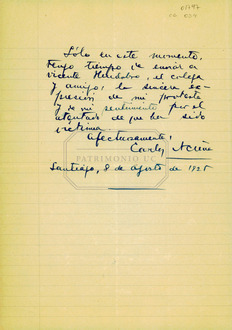 Sólo en este momento,
tengo tiempo de enviar a
Vicente Huidobro, el colega
y amigo, la sincera ex-
presión de mi protesta
y de mi sentimiento por el
atentado de que ha sido
víctima.
Afectuosamente,
Carlos
PATRIMONIO UC
Santiago, 8 de Agosto de 1925